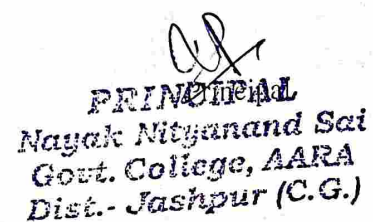 Principal
PRINCIPAL
Nayak Nityanand Sai
Govt. College, AARA
Dist.- Jashpur (C.G.)